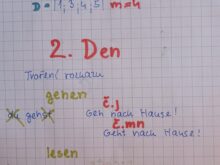 D = {1, 3, 4, 5} m=4
2. Den
Tvoření rozkazu
gehen
č.j
du gehst Geh nach Hause!
č.mn
Geht nach Hause!
lesen